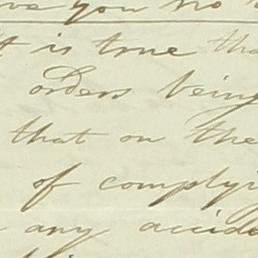 you no
it is true tha
orders being
that on the
of complyi
any accide